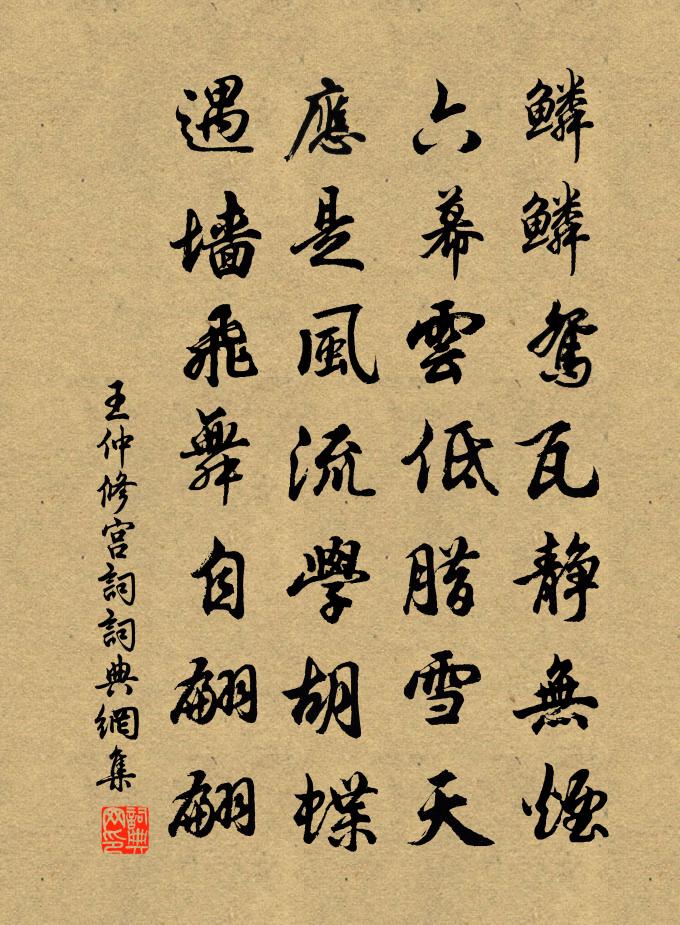 鱗鱗鴛瓦静無煙
六幕雲低腊雪天
應是風流學胡蝶
遇墻飛舞自翩翩
王仲修宫詞詞典網集
詞典網印